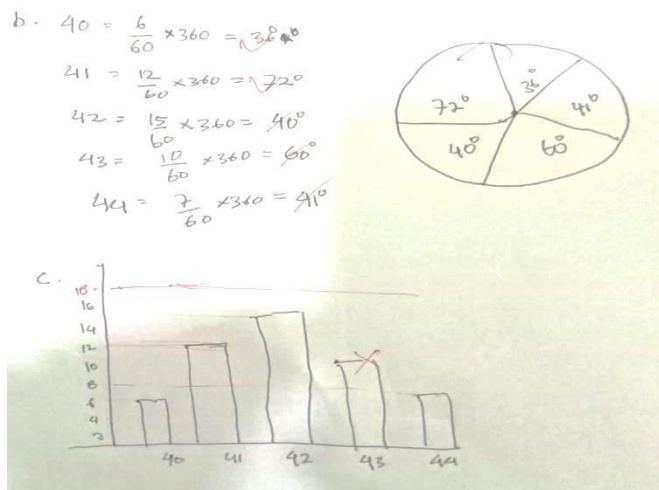 b. 40 = 6/60 × 360 = 36°
41 = 12/60 × 360 = 72°
42 = 15/60 × 360 = 40°
43 = 10/60 × 360 = 60°
44 = 7/60 × 360 = 41°
36°
72° 41°
40° 60°
c.
18
16
14
12
10
8
6
4
2
40 41 42 43 44